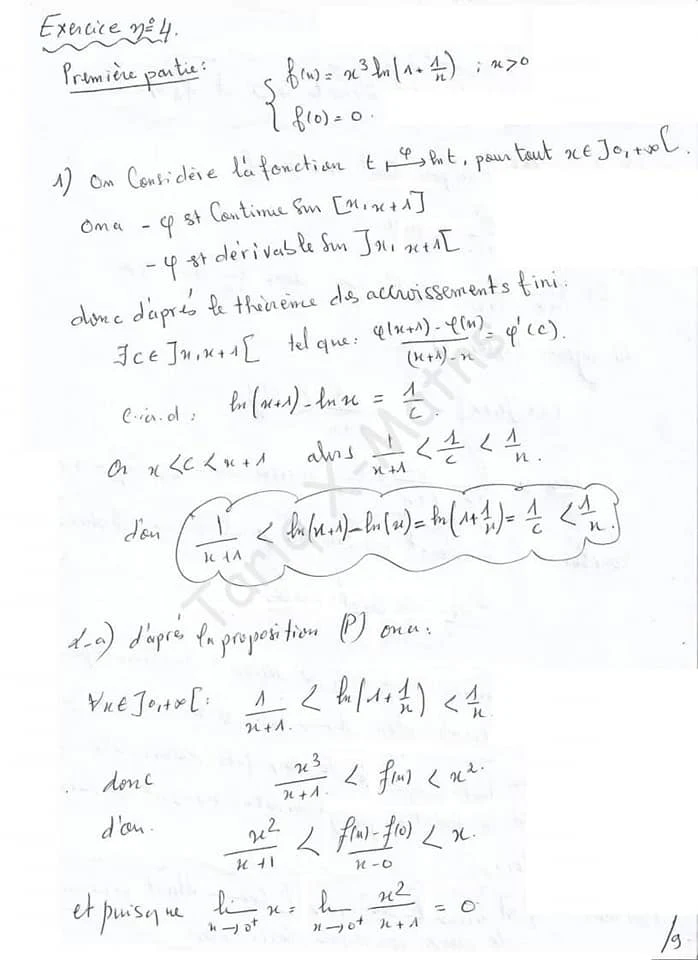 Exercice n°4.
Première partie: { f(x) = x³ ln(1 + 1/x) ; x>0
f(0) = 0.
1) On Considère la fonction t ↦^φ ln t, pour tout x ∈ ]0, +∞[.
Ona - φ st Continue sur [x, x+1]
- φ st dérivable sur ]x, x+1[
donc d'après le théorème des accroissements fini.
∃c ∈ ]x, x+1[ tel que: (φ(x+1) - φ(x))/((x+1) - x) = φ'(c).
c.à.d: ln(x+1) - ln x = 1/c.
Or x < c < x+1 alors 1/(x+1) < 1/c < 1/x.
d'où 1/(x+1) < ln(x+1) - ln(x) = ln(1 + 1/x) = 1/c < 1/x.
2-a) d'après la proposition (P) ona:
∀x ∈ ]0, +∞[: 1/(x+1) < ln(1 + 1/x) < 1/x.
donc x³/(x+1) < f(x) < x².
d'où. x²/(x+1) < (f(x) - f(0))/(x-0) < x.
et puisque lim x→0⁺ x = lim x→0⁺ x²/(x+1) = 0
/9
Tariq X-Maths